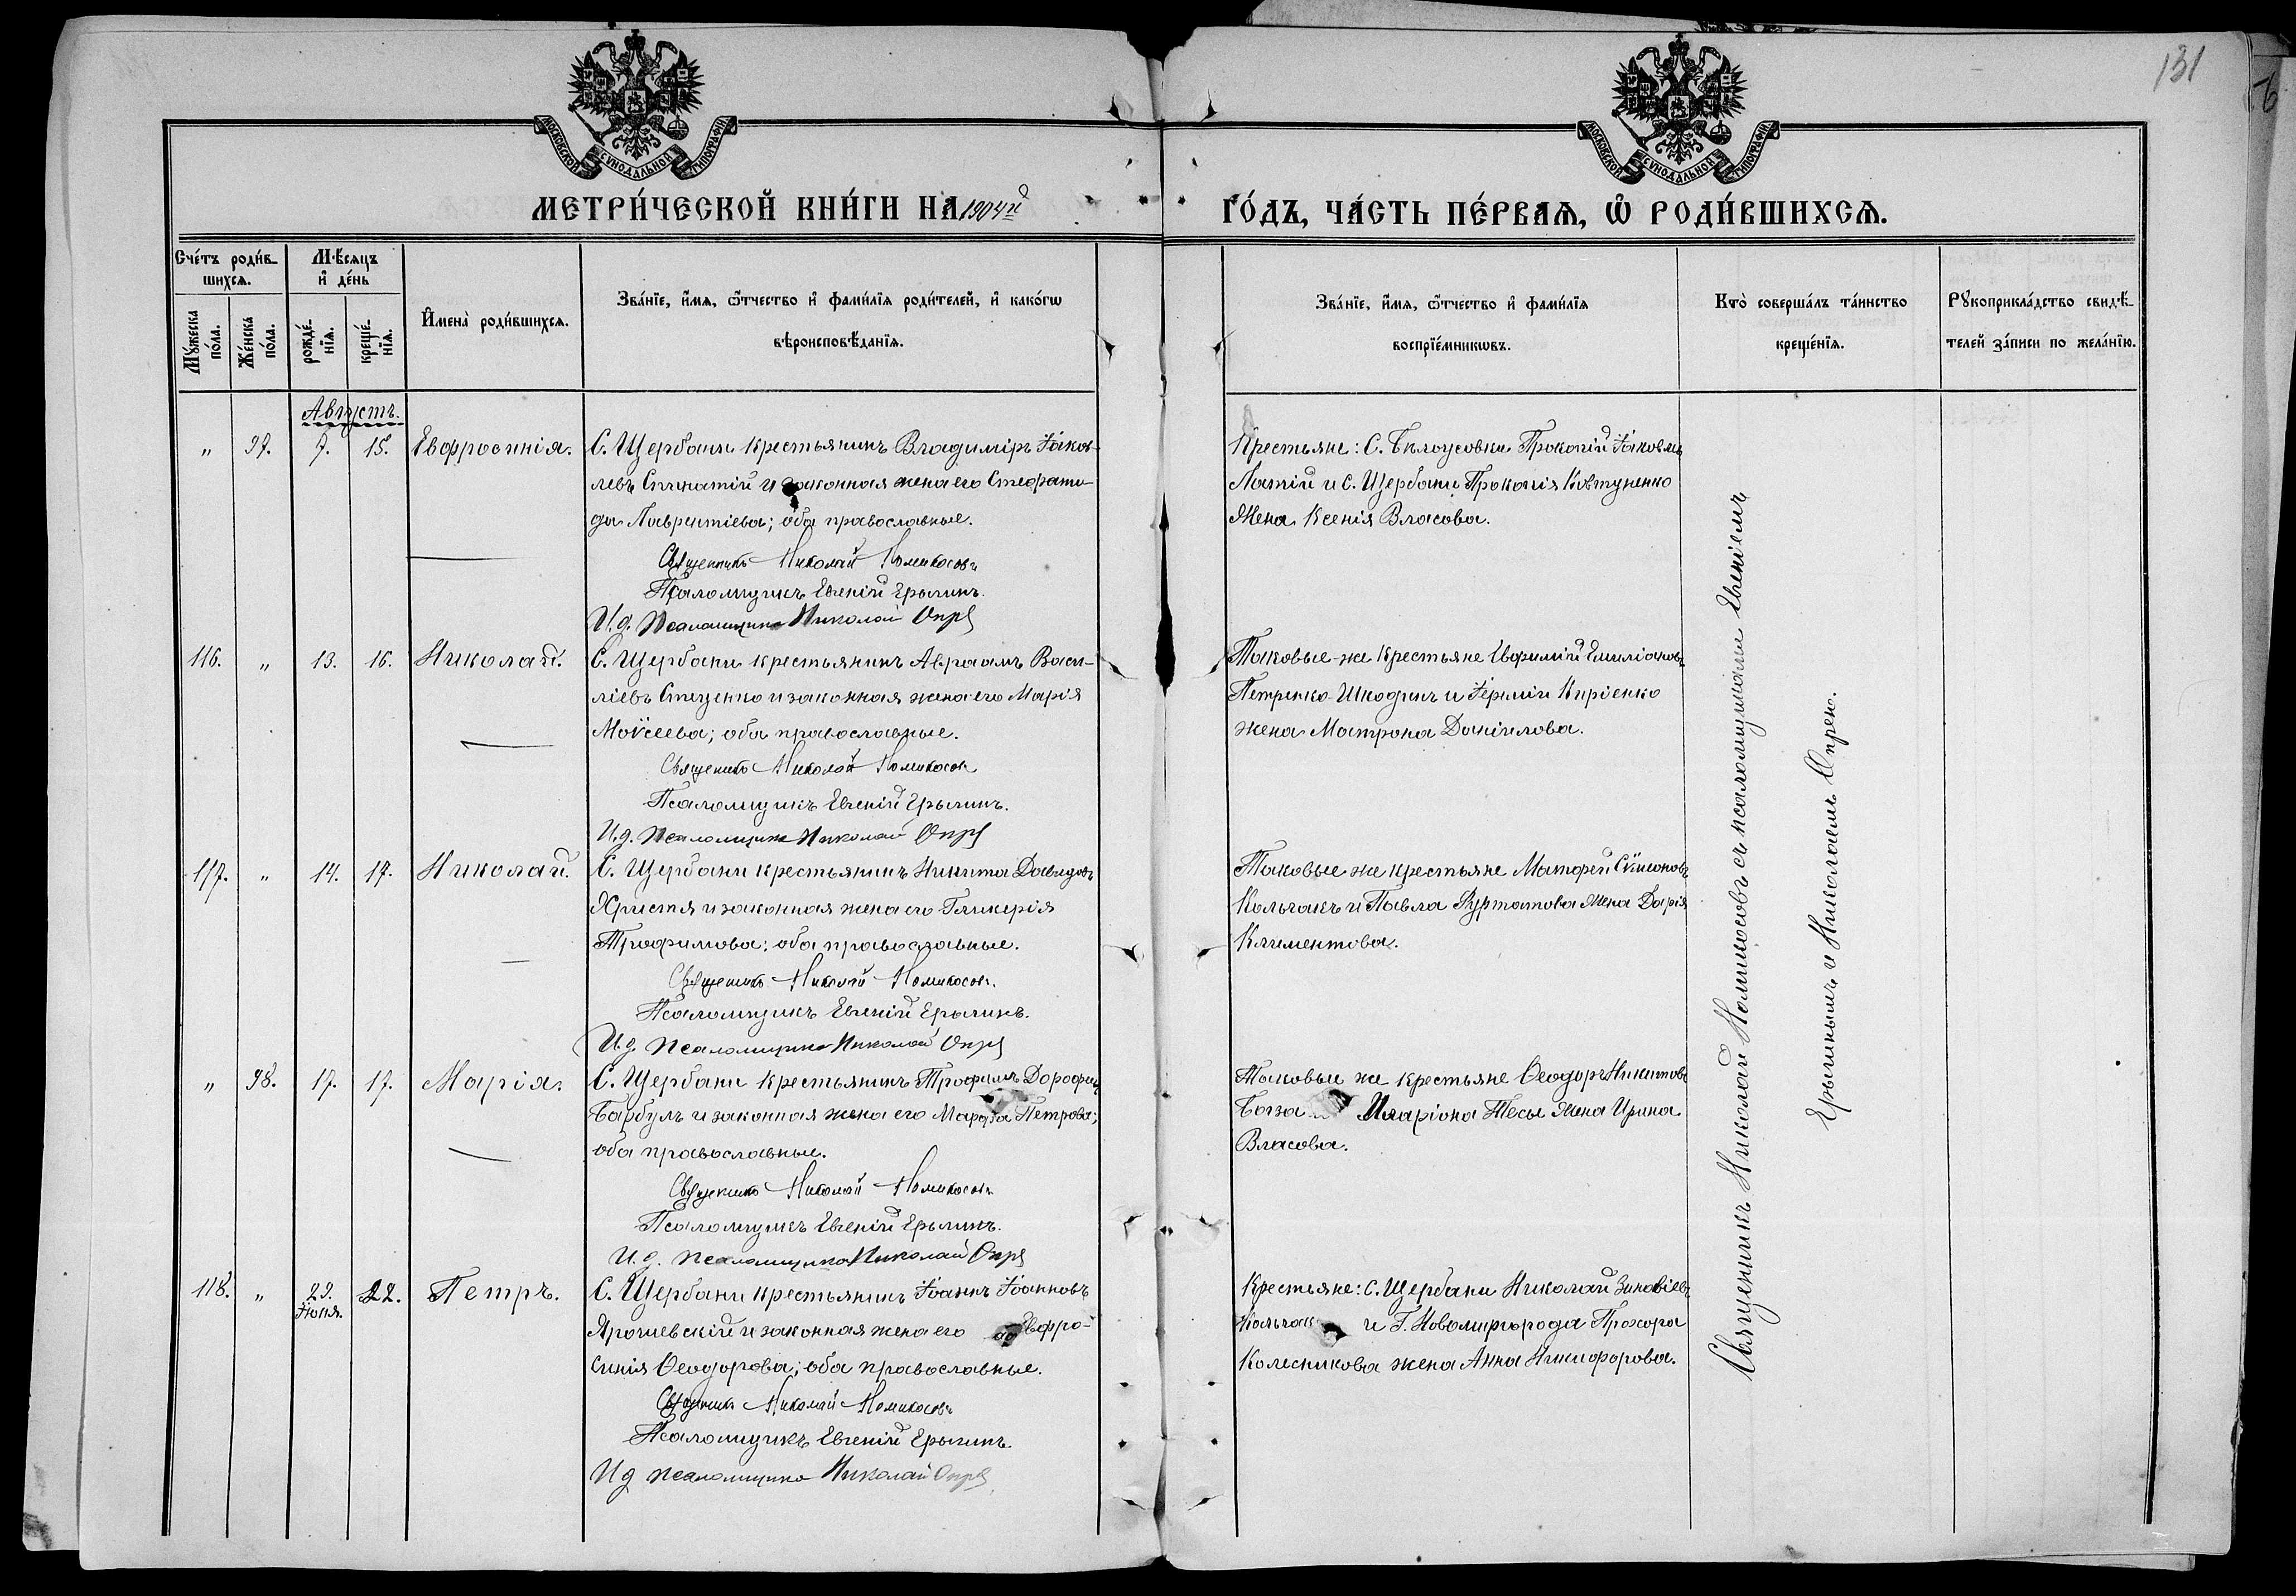 131
МОСКОВСКОЙ СѴНОДАЛЬНОЙ ТИПОГРАФІИ
МОСКОВСКОЙ СѴНОДАЛЬНОЙ ТИПОГРАФІИ
МЕТРИ́ЧЕСКОЙ КНИ́ГИ НА 1904й
ГО́ДЪ, ЧА́СТЬ ПЕ́РВАѦ, Ѿ РОДИ́ВШИХСѦ.
Сче́тъ роди́в-
шихсѧ.
Мꙋ́жеска по́ла.
Же́нска по́ла.
Мѣ́сяцъ
и де́нь
рожде́-
нїѧ.
креще́-
нїѧ.
Имена̀ роди́вшихсѧ.
Зва́нїе, и́мѧ, ѻ́тчество и фами́лїѧ роди́телей, и како́гѡ
вѣроисповѣ́данїѧ.
Зва́нїе, и́мѧ, ѻ́тчество и фами́лїѧ
воспрїе́мникѡвъ.
Кто̀ соверша́лъ та́инство
креще́нїѧ.
Рꙋкоприкла́дство свидѣ́-
телей за́писи по жела́нїю.
Августъ.
" 97. 7. 15. Евфросинія. С. Щербани крестьянинъ Владиміръ Іаков-
левъ и законная жена его Стефани-
да Лаврентіева; оба православные.
Священникъ Николай Номикосовъ
Псаломщикъ Евгеній Ерыгинъ.
И. д. Псаломщика Николай Опря
Крестьяне: С. Бѣлоусовки Прокопій Іаковлевъ
Латій и С. Щербани Прокопія Ковтуненко
жена Ксенія Власова.
116. " 13. 16. Николай. С. Щербани крестьянинъ Авраамъ Васи-
ліевъ Стеценко и законная жена его Марія
Моѵсеева; оба православные.
Священникъ Николай Номикосовъ
Псаломщикъ Евгеній Ерыгинъ.
И. д. Псаломщика Николай Опря
Таковые-же крестьяне Евфимій Емиліановъ
Петренко и Іереміи Киріенко
жена Матрона Даніилова.
117. " 14. 17. Николай. С. Щербани крестьянинъ Никита Давидовъ
Христя и законная жена его Гликерія
Трофимова; оба православные.
Священникъ Николай Номикосовъ.
Псаломщикъ Евгеній Ерыгинъ.
И. д. Псаломщика Николай Опря
Таковые же крестьяне Матфей Сѵмеоновъ
Кольчакъ и Павла Куртатова жена Дарія
Климентова.
" 98. 17. 17. Марія. С. Щербани крестьянинъ Трофимъ Дорофіевъ
Барбулъ и законная жена его Марфа Петрова;
оба православные.
Священникъ Николай Номикосовъ
Псаломщикъ Евгеній Ерыгинъ.
И. д. Псаломщика Николай Опря
Таковые же крестьяне Ѳеодоръ Никитовъ
База Иларіона Тесы жена Ирина
Власова.
118. " 29. Іюня. 22. Петръ. С. Щербани крестьянинъ Іоаннъ Іоанновъ
Ярошевскій и законная жена его Евфро-
синія Ѳеодорова; оба православные.
Священникъ Николай Номикосовъ
Псаломщикъ Евгеній Ерыгинъ.
И д Псаломщика Николай Опря
Крестьяне: С. Щербани Николай Зиновіевъ
Кольчакъ и Г. Новомиргорода Прохора
Колесникова жена Анна Никифорова.
Священникъ Николай Номикосовъ съ псаломщиками Евгеніемъ
Ерыгинымъ и Николаемъ Опрею.